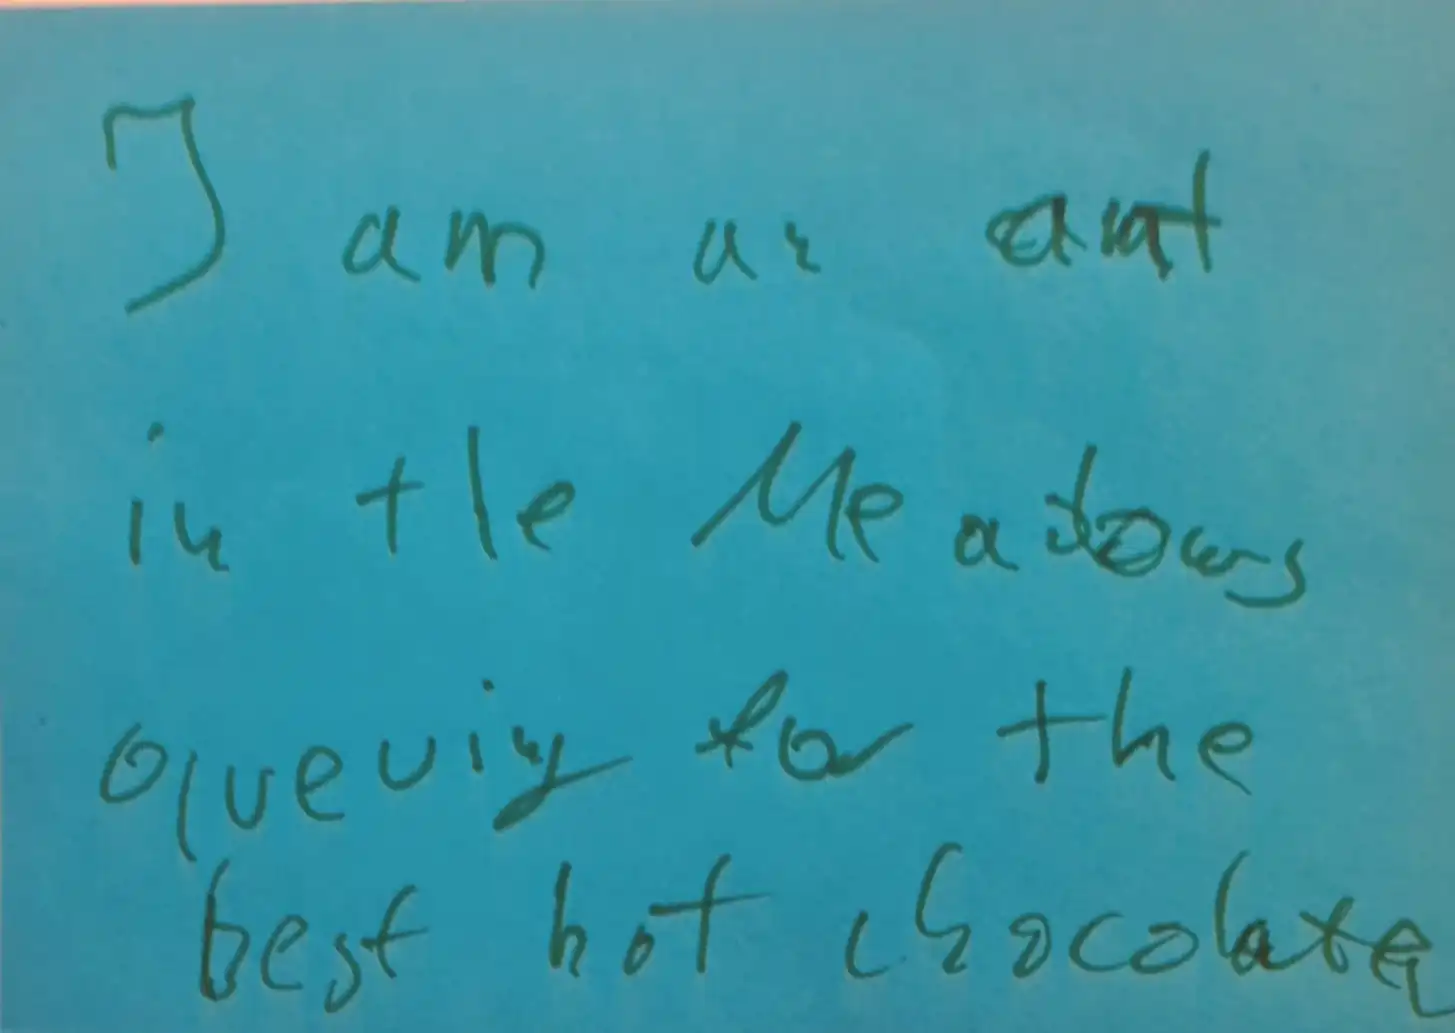 I am an ant
in the Meadows
queuing for the
best hot chocolate